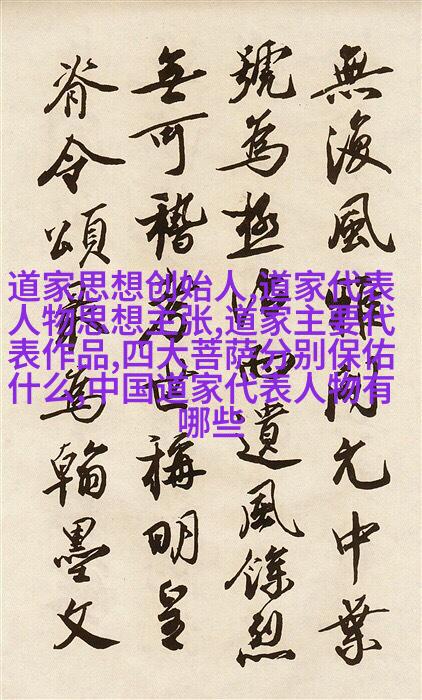 道家思想创始人,道家代表
人物思想主张,道家主要代
表作品,四大菩萨分别保佑
什么,中国道家代表人物有
哪些
無復風雅開元中葉
號為極盛而遺風餘烈
無可稽考世稱明皇
脊令頌最為翰墨文